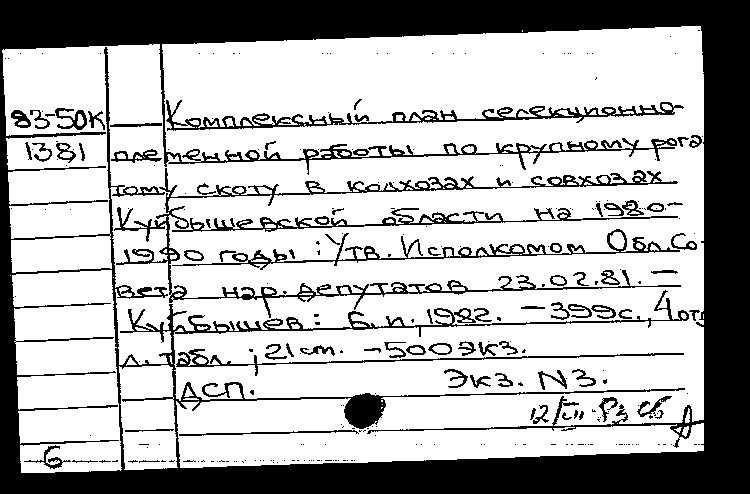 83-50К Комплексный план селекционно-
1381 племенной работы по крупному рога
тому скоту в колхозах и совхозах
Куйбышевской области на 1980-
1990 годы : Утв. Исполкомом Обл.Со-
вета нар. депутатов 23.02.81. —
Куйбышев : Б.и., 1982. — 399с., 4 отд
л. табл. ; 21 cm. — 500 экз.
ДСП. Экз. N3.
12/VII-83
6